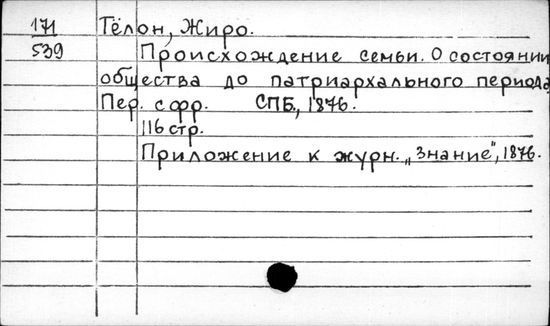 171 Тёлон, Жиро.
539 Происхождение семьи. О состоянии
общества до патриархального периода
Пер. с фр. СПБ., 1876.
116 стр.
Приложение к журн. „Знание", 1876.